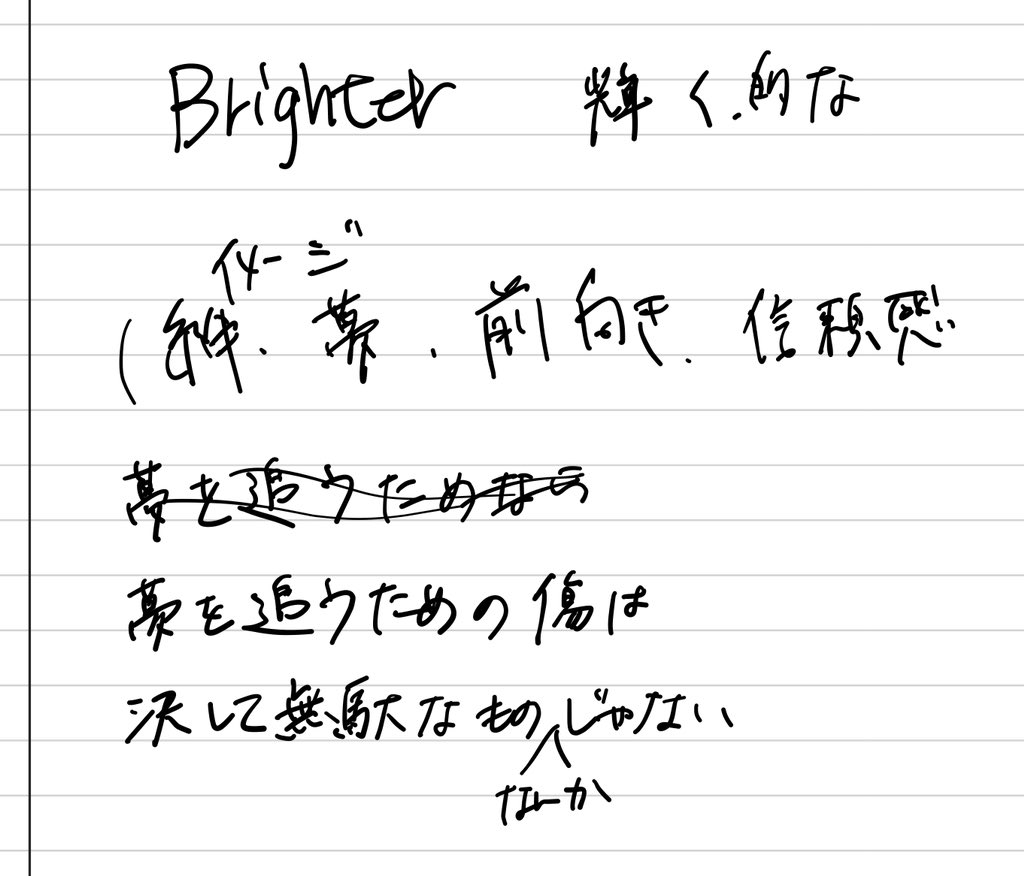 Brighter 輝く.的な
イメージ
(絆.幕.前向き.信頼感
夢を追うため
夢を追うための傷は
決して無駄なものじゃない
なんか